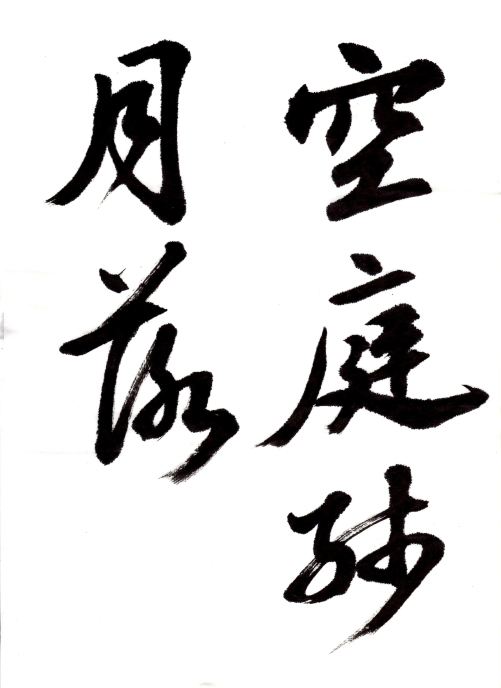 空庭
月落